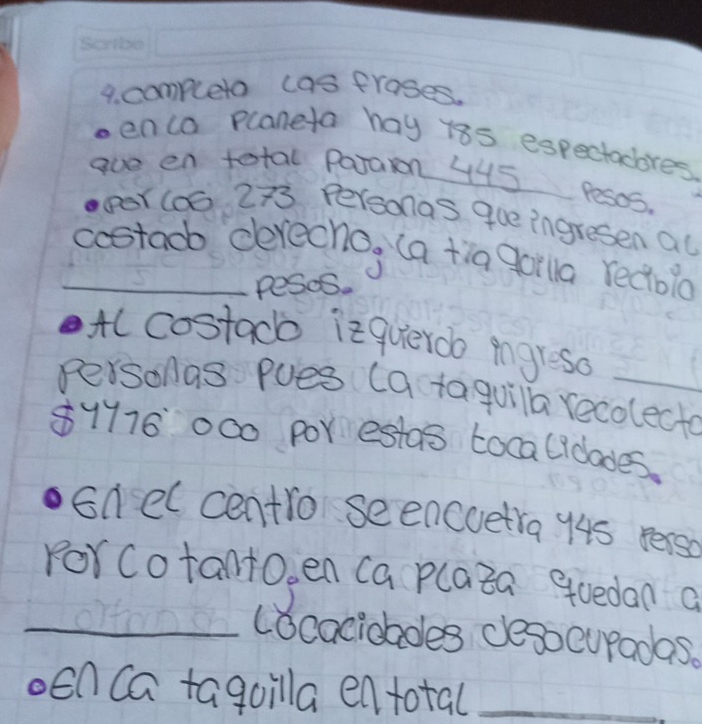 Scribe
9. completa las frases.
• en la planeta hay 785 espectadores.
que en total pagaron 445 pesos.
• por los 273 personas que ingresen al
costado derecho, la tiaquilla recibio
pesos.
• Al costado izquierdo ingreso
personas pues la taquilla recolecto
$4476 000 por estas localidades.
• En el centro se encuetra 445 perso
Por lo tanto, en la plaza quedan a
locacidades desocupadas.
• En la taquilla en total